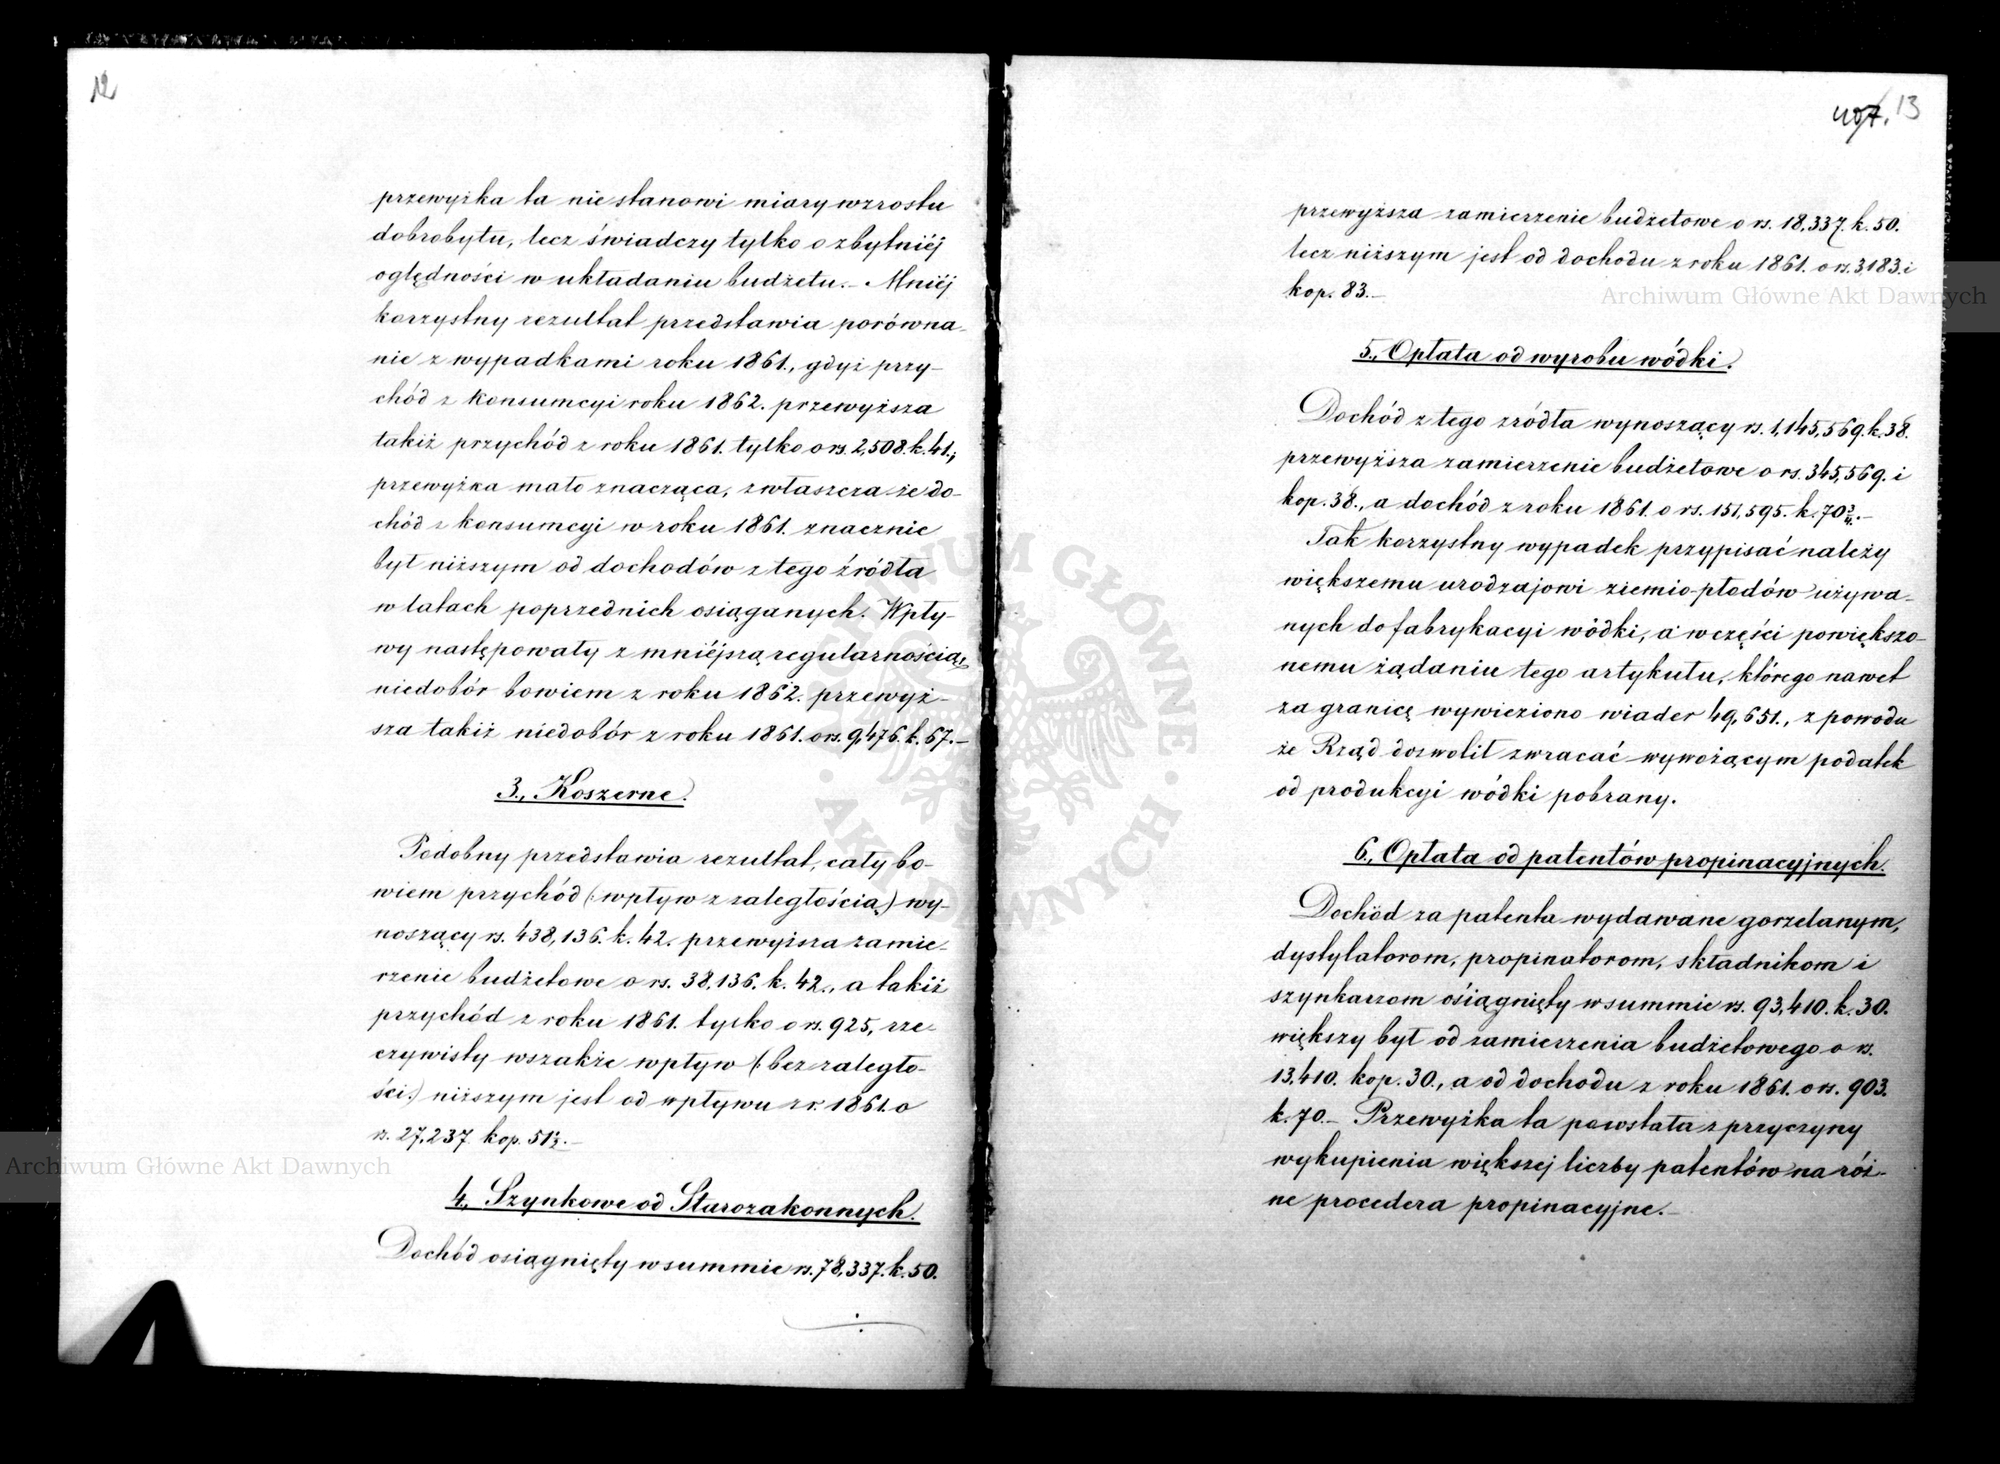 12
przewyżka ta nie stanowi miary wzrostu
dobrobytu, lecz świadczy tylko o zbytniéj
oględności w układaniu budżetu.– Mniéj
korzystny rezultat przedstawia porówna-
nie z wypadkami roku 1861., gdyż przy-
chód z konsumcyi roku 1862. przewyższa
takiż przychód z roku 1861. tylko o rs. 2,508. k. 41.;
przewyżka mało znacząca, zwłaszcza że do-
chód z konsumcyi w roku 1861. znacznie
był niższym od dochodów z tego źródła
w latach poprzednich osiąganych. Wpły-
wy następowały z mniéjszą regularnością,
niedobór bowiem z roku 1862. przewyż-
sza takiż niedobór z roku 1861. o rs. 9,476. k. 67.–
3., Koszerne.
Podobny przedstawia rezultat, cały bo-
wiem przychód (: wpływ z zaległością) wy-
noszący rs. 438,136. k. 42. przewyższa zamie-
rzenie budżetowe o rs. 38,136. k. 42., a takiż
przychód z roku 1861. tylko o rs. 925, rze-
czywisty wszakże wpływ (: bez zaległo-
ści:) niższym jest od wpływu z r. 1861. o
rs. 27,237. kop. 51½.–
4., Szynkowe od Starozakonnych.
Dochód osiągnięty w summie rs. 78,337. k. 50.
13
przewyższa zamierzenie budżetowe o rs. 18,337. k. 50.
lecz niższym jest od dochodu z roku 1861. o rs. 3,183. i
kop. 83.–
5., Opłata od wyrobu wódki.
Dochód z tego źródła wynoszący rs. 1,145,569. k. 38.
przewyższa zamierzenie budżetowe o rs. 345,569. i
kop. 38., a dochód z roku 1861. o rs. 151,595. k. 70¾.–
Tak korzystny wypadek przypisać należy
większemu urodzajowi ziemio-płodów używa-
nych do fabrykacyi wódki, a w części powiększo-
nemu żądaniu tego artykułu, którego nawet
za granicę wywieziono wiader 49,651., z powodu
że Rząd dozwolił zwracać wywożącym podatek
od produkcyi wódki pobrany.
6., Opłata od patentów propinacyjnych.
Dochód za patenta wydawane gorzelanym,
dystylatorom, propinatorom, składnikom i
szynkarzom osiągnięty w summie rs. 93,410. k. 30.
większy był od zamierzenia budżetowego o rs.
13,410. kop. 30., a od dochodu z roku 1861. o rs. 903.
k. 70.– Przewyżka ta powstała z przyczyny
wykupienia większej liczby patentów na róż-
ne procedera propinacyjne.–
Archiwum Główne Akt Dawnych
Archiwum Główne Akt Dawnych
ARCHIWUM GŁÓWNE AKT DAWNYCH